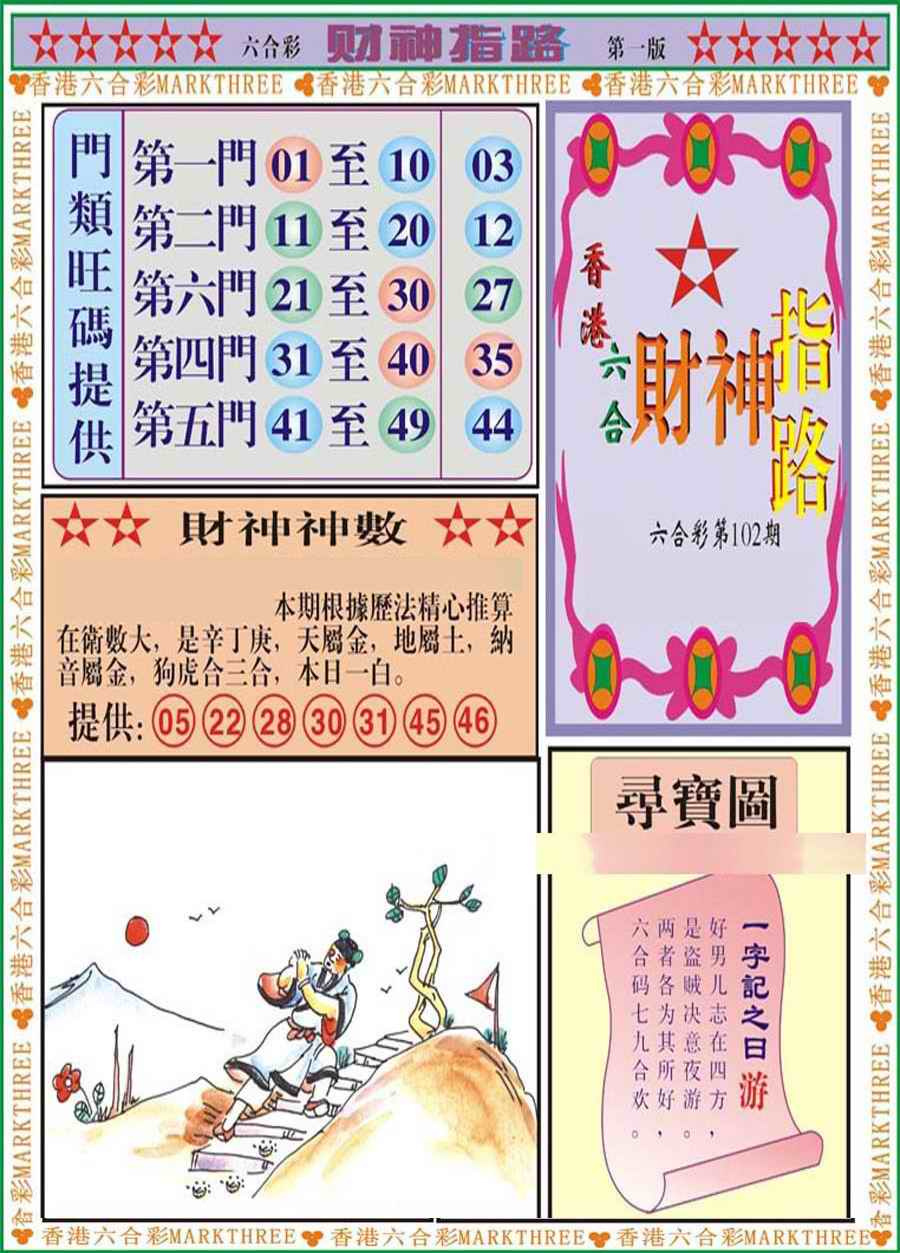 六合彩 财神指路 第一版
香港六合彩MARKTHREE 香港六合彩MARKTHREE 香港六合彩MARKTHREE
香港六合彩MARKTHREE
香港六合彩MARKTHREE
香港六合彩MARKTHREE
香港六合彩MARKTHREE
門類旺碼提供
第一門 01 至 10 03
第二門 11 至 20 12
第六門 21 至 30 27
第四門 31 至 40 35
第五門 41 至 49 44
香港六合
財神指路
六合彩第102期
財神神數
本期根據歷法精心推算
在衛數大，是辛丁庚，天屬金，地屬土，納
音屬金，狗虎合三合，本日一白。
提供: 05 22 28 30 31 45 46
尋寶圖
一字記之日 游
好男儿志在四方，
是盗贼决意夜游。
两者各为其所好，
六合码七九合欢。
香港六合彩MARKTHREE
香港六合彩MARKTHREE
香港六合彩MARKTHREE
彩MARKTHREE
香港六合彩MARKTHREE 香港六合彩MARKTHREE 香港六合彩MARKTHREE